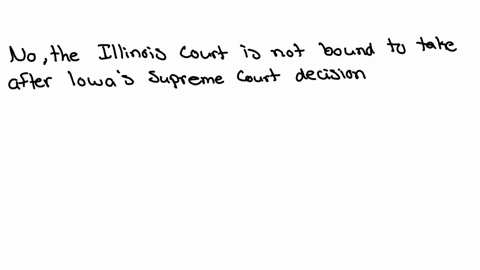 No, the Illinois Court is not bound to take
after Iowa's Supreme Court decision